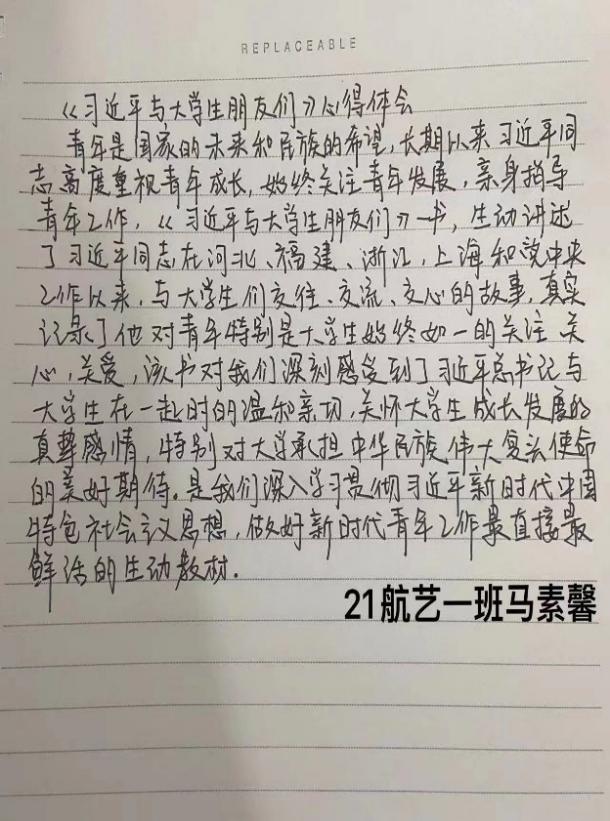 REPLACEABLE
《习近平与大学生朋友们》心得体会
青年是国家的未来和民族的希望,长期以来习近平同
志高度重视青年成长,始终关注青年发展,亲身指导
青年工作,《习近平与大学生朋友们》一书,生动讲述
了习近平同志在河北、福建、浙江,上海和党中央
工作以来,与大学生们交往、交流、交心的故事,真实
记录了他对青年特别是大学生始终如一的关注关
心,关爱,该书对我们深刻感受到了习近平总书记与
大学生在一起时的温和亲切,关怀大学生成长发展的
真挚感情,特别对大学承担中华民族伟大复兴使命
的美好期待。是我们深入学习贯彻习近平新时代中国
特色社会主义思想,做好新时代青年工作最直接最
鲜活的生动教材.
21航艺一班马素馨